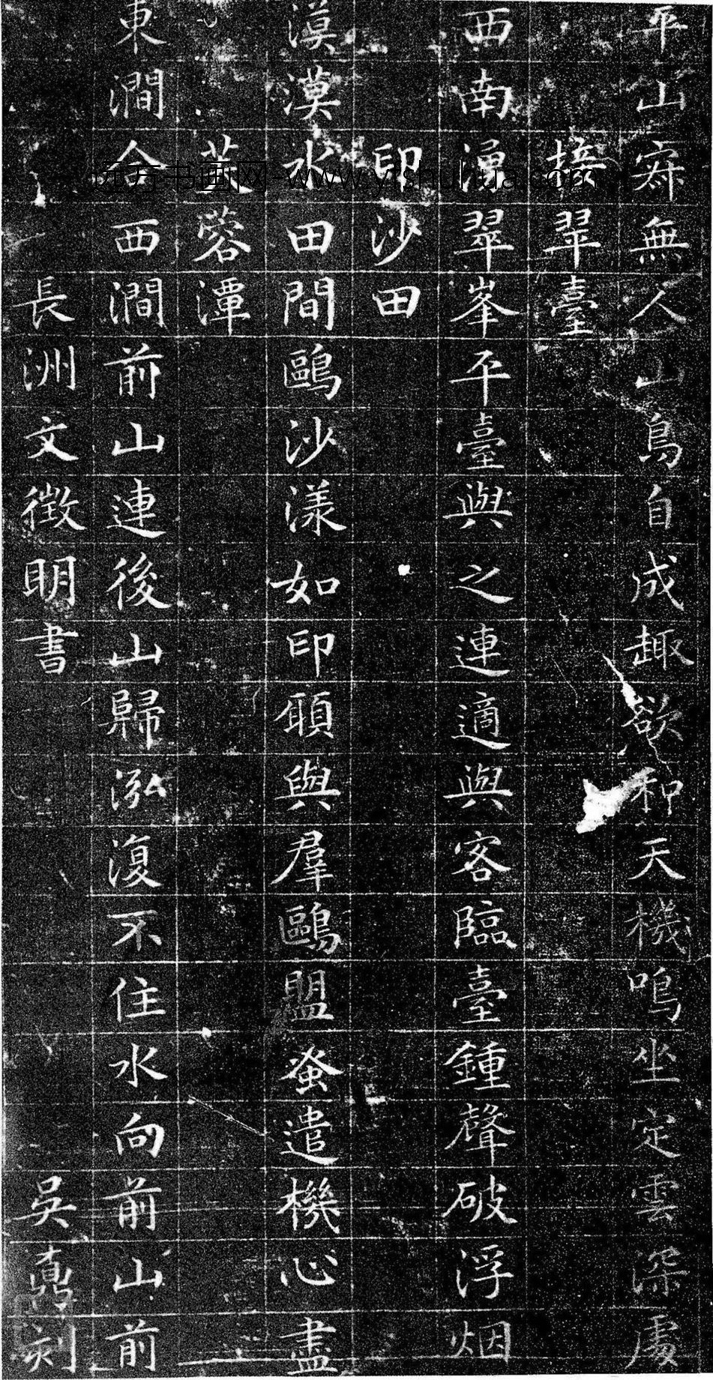 平山寂無人山鳥自成趣欲和天機鳴坐定雲深處
接翠臺
西南湧翠峯平臺與之連適與客臨臺鍾聲破浮烟
印沙田
漠漠水田間鷗沙漾如印願與羣鷗盟蚤遣機心盡
芙蓉潭
東澗合西澗前山連後山歸泓復不住水向前山前
長洲文徵明書 吳鼒刻